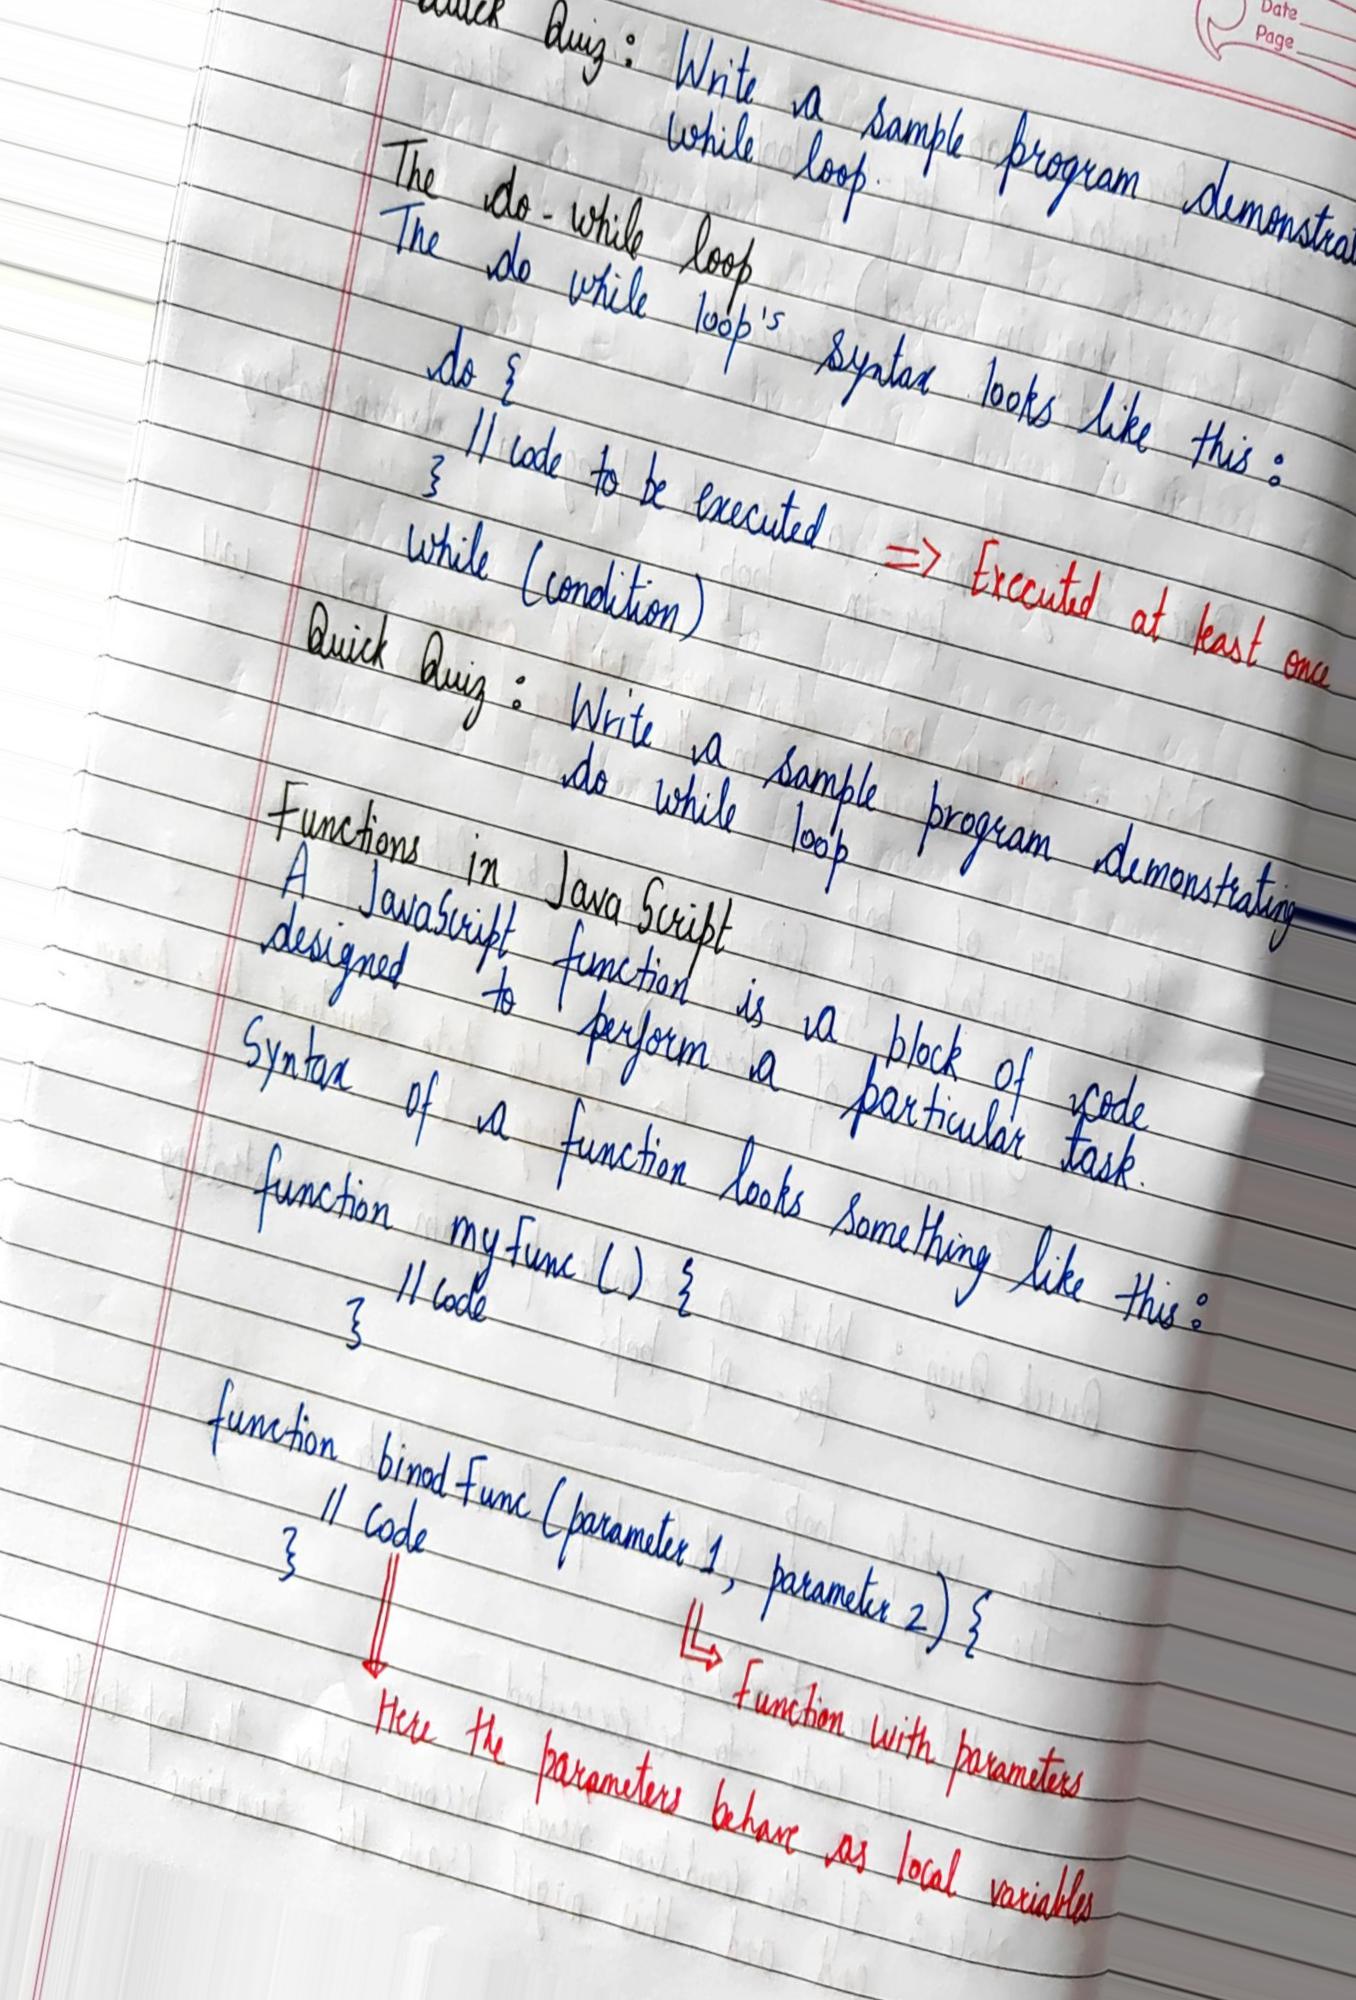 Date
Page
Quick Quiz : Write a sample program
while loop.
The do-while loop
The do while loop's syntax looks like this :
do {
// code to be executed => Executed at least once
}
while (condition)
Quick Quiz : Write a sample program demonstrating
do while loop
Functions in JavaScript
A JavaScript function is a block of code
designed to perform a particular task.
Syntax of a function looks something like this :
function myFunc () {
// code
}
function binodFunc (parameter 1, parameter 2) {
// code
}
Function with parameters
Here the parameters behave as local variables